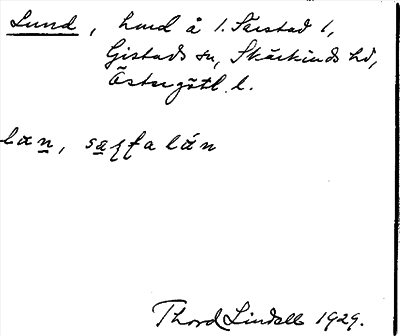 Lund, hmd å 1. Särstad 1,
Gistads sn, Skärkinds hd,
Östergötl. l.
lan, saffa lán
Thord Lindell 1929.